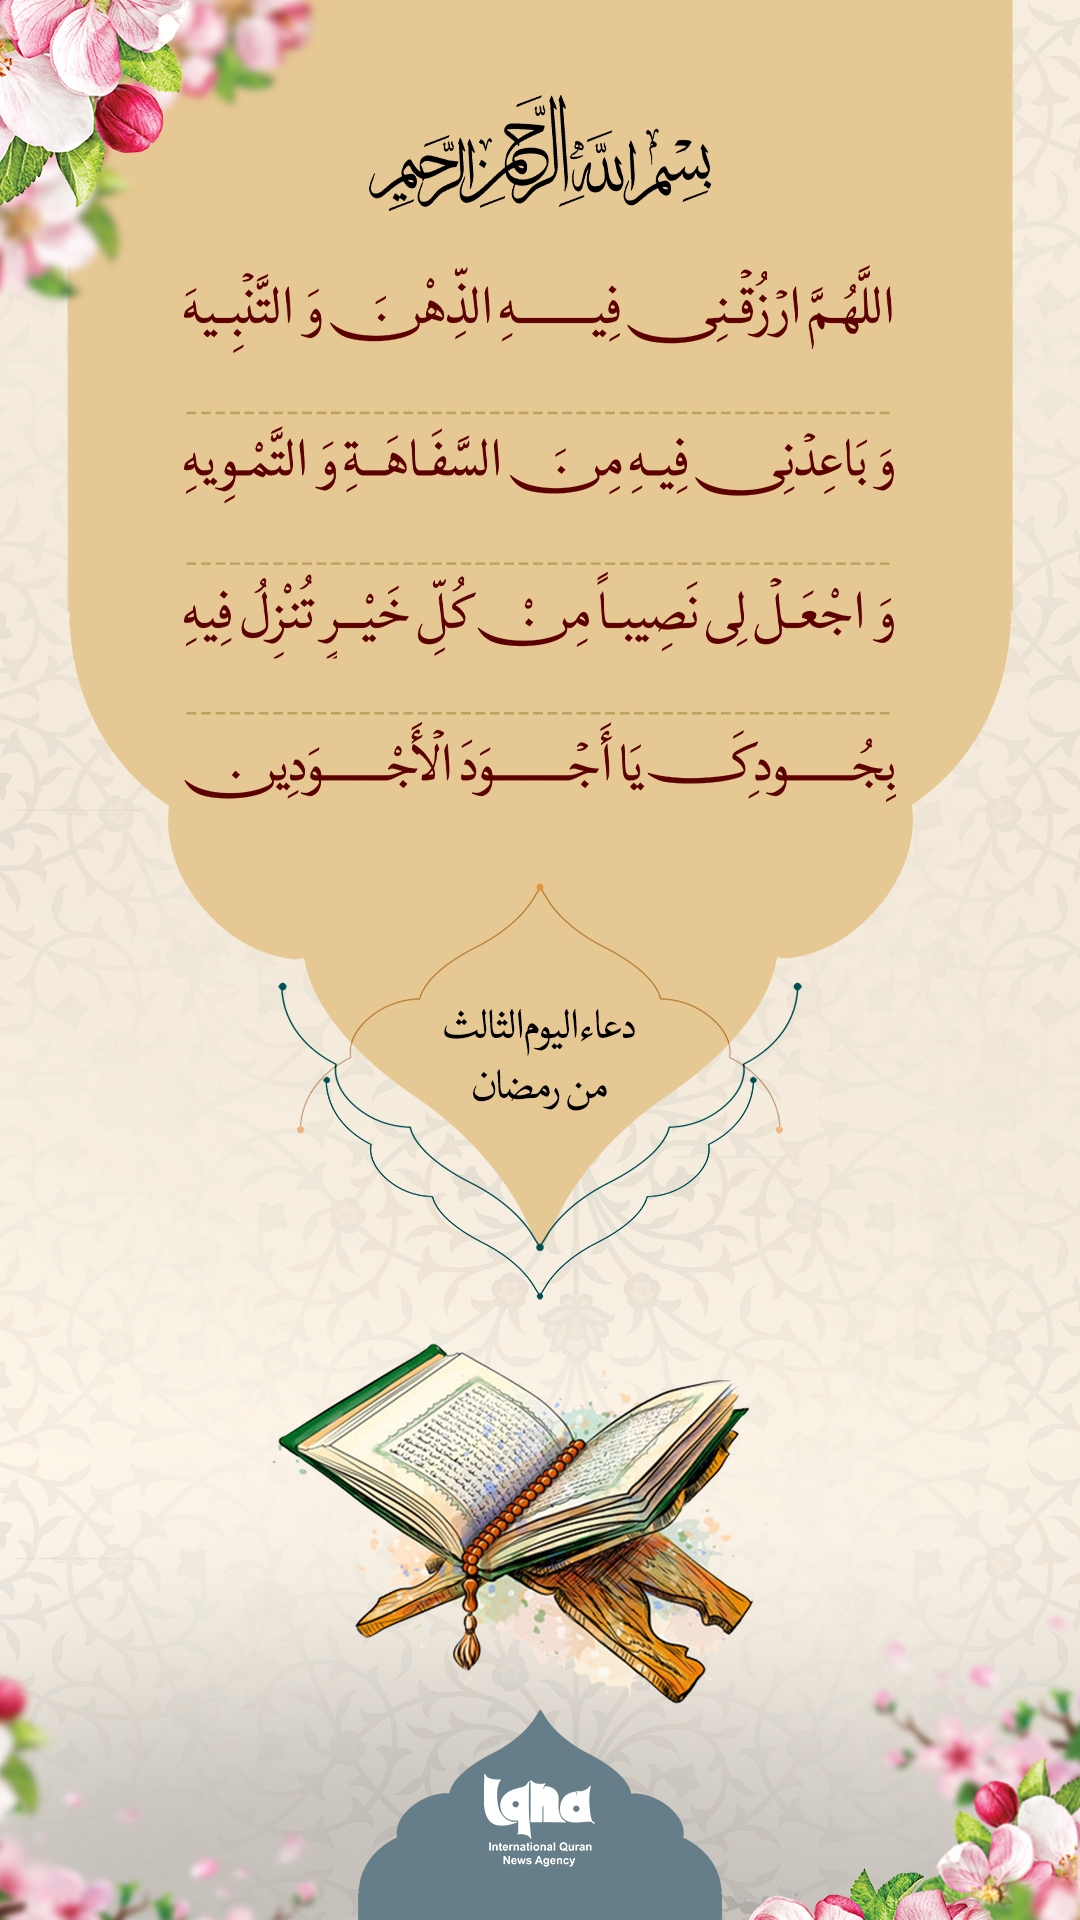 بِسْمِ اللَّهِ الرَّحْمَنِ الرَّحِيمِ
اللَّهُمَّ ارْزُقْنِی فِیهِ الذِّهْنَ وَ التَّنْبِیهَ
وَ بَاعِدْنِی فِیهِ مِنَ السَّفَاهَةِ وَ التَّمْوِیهِ
وَ اجْعَلْ لِی نَصِیباً مِنْ کُلِّ خَیْرٍ تُنْزِلُ فِیهِ
بِجُودِکَ یَا أَجْوَدَ الْأَجْوَدِین
دعاء الیوم الثالث
من رمضان
iqna
International Quran
News Agency